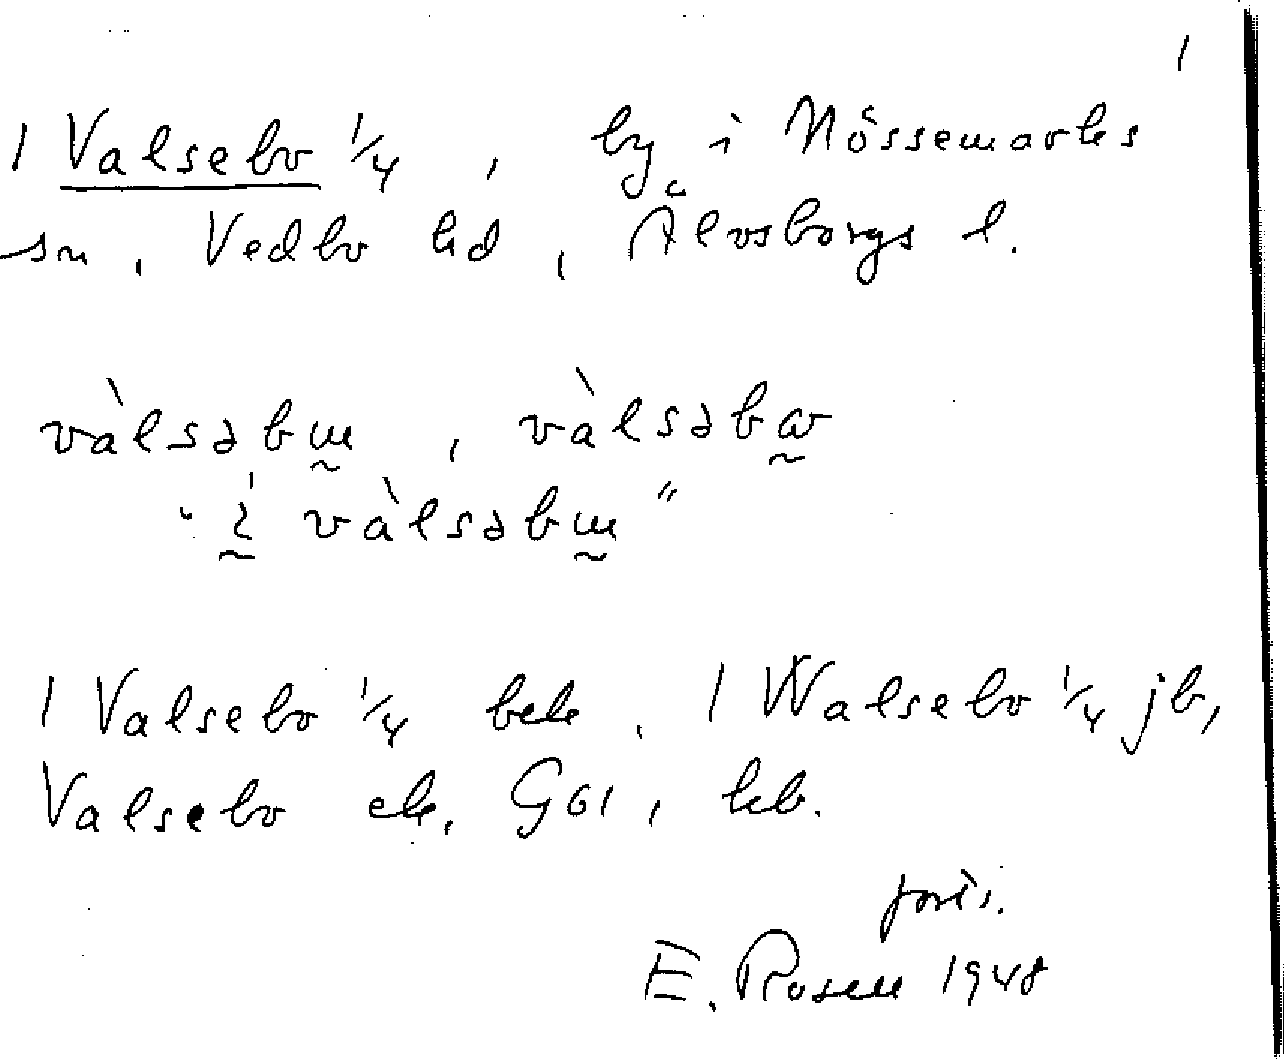 1
1 Valsebo 1/4, by i Nössemarks
sn, Vedbo hd, Älvsborgs l.
vàlsəbɯ, vàlsəbꞷ
"i vàlsəbɯ"
1 Valsebo 1/4 bek, 1 Walsebo 1/4 jb,
Valsebo ek, G61, kb.
forts.
E. Rosell 1948